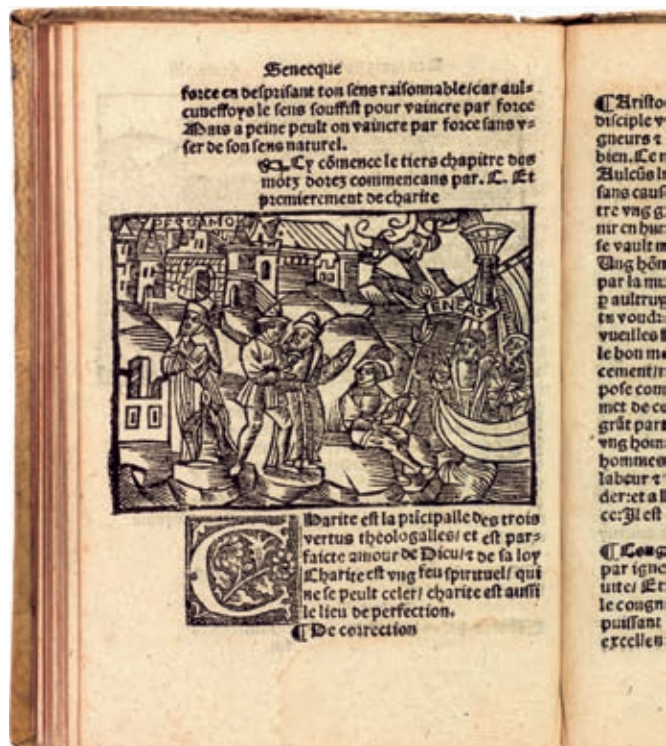 Senecque
force en desprisant ton sens raisonnable/car aul-
cuneffoys le sens souffist pour vaincre par force
Mais a peine peult on vaincre par force sans v-
ser de son sens naturel.
Cy cõmence le tiers chapitre des
motz dorez commencans par. C. Et
premierement de charite
PERGAMO
ENEAS
Charite est la prĩcipalle des trois
vertus theologalles/ et est par-
faicte amour de Dieu/⁊ de sa loy
Charite est vng feu spirituel/ qui
ne se peult celer/ charite est aussi
le lieu de perfection.
¶De correction
disciple
gneurs ⁊
bien. Ce
sans
tre vng
nir en
se vault
Ung hõm
par la
tu
le bon
met de
grãt
vng
hommes
labeur ⁊
der:et a
ce:Jl est
¶
par
le
puissant